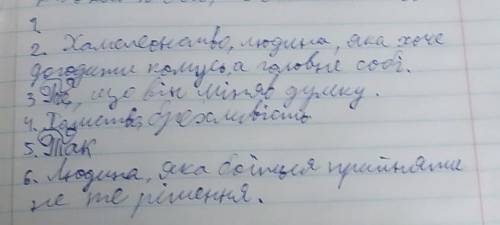 1.
2. Хамелеонство, людина, яка хоче
догодити комусь, а головне собі.
3. Те, що він міняв думку.
4. брехливість
5. Так
6. Людина, яка боїться прийняти
не те рішення.